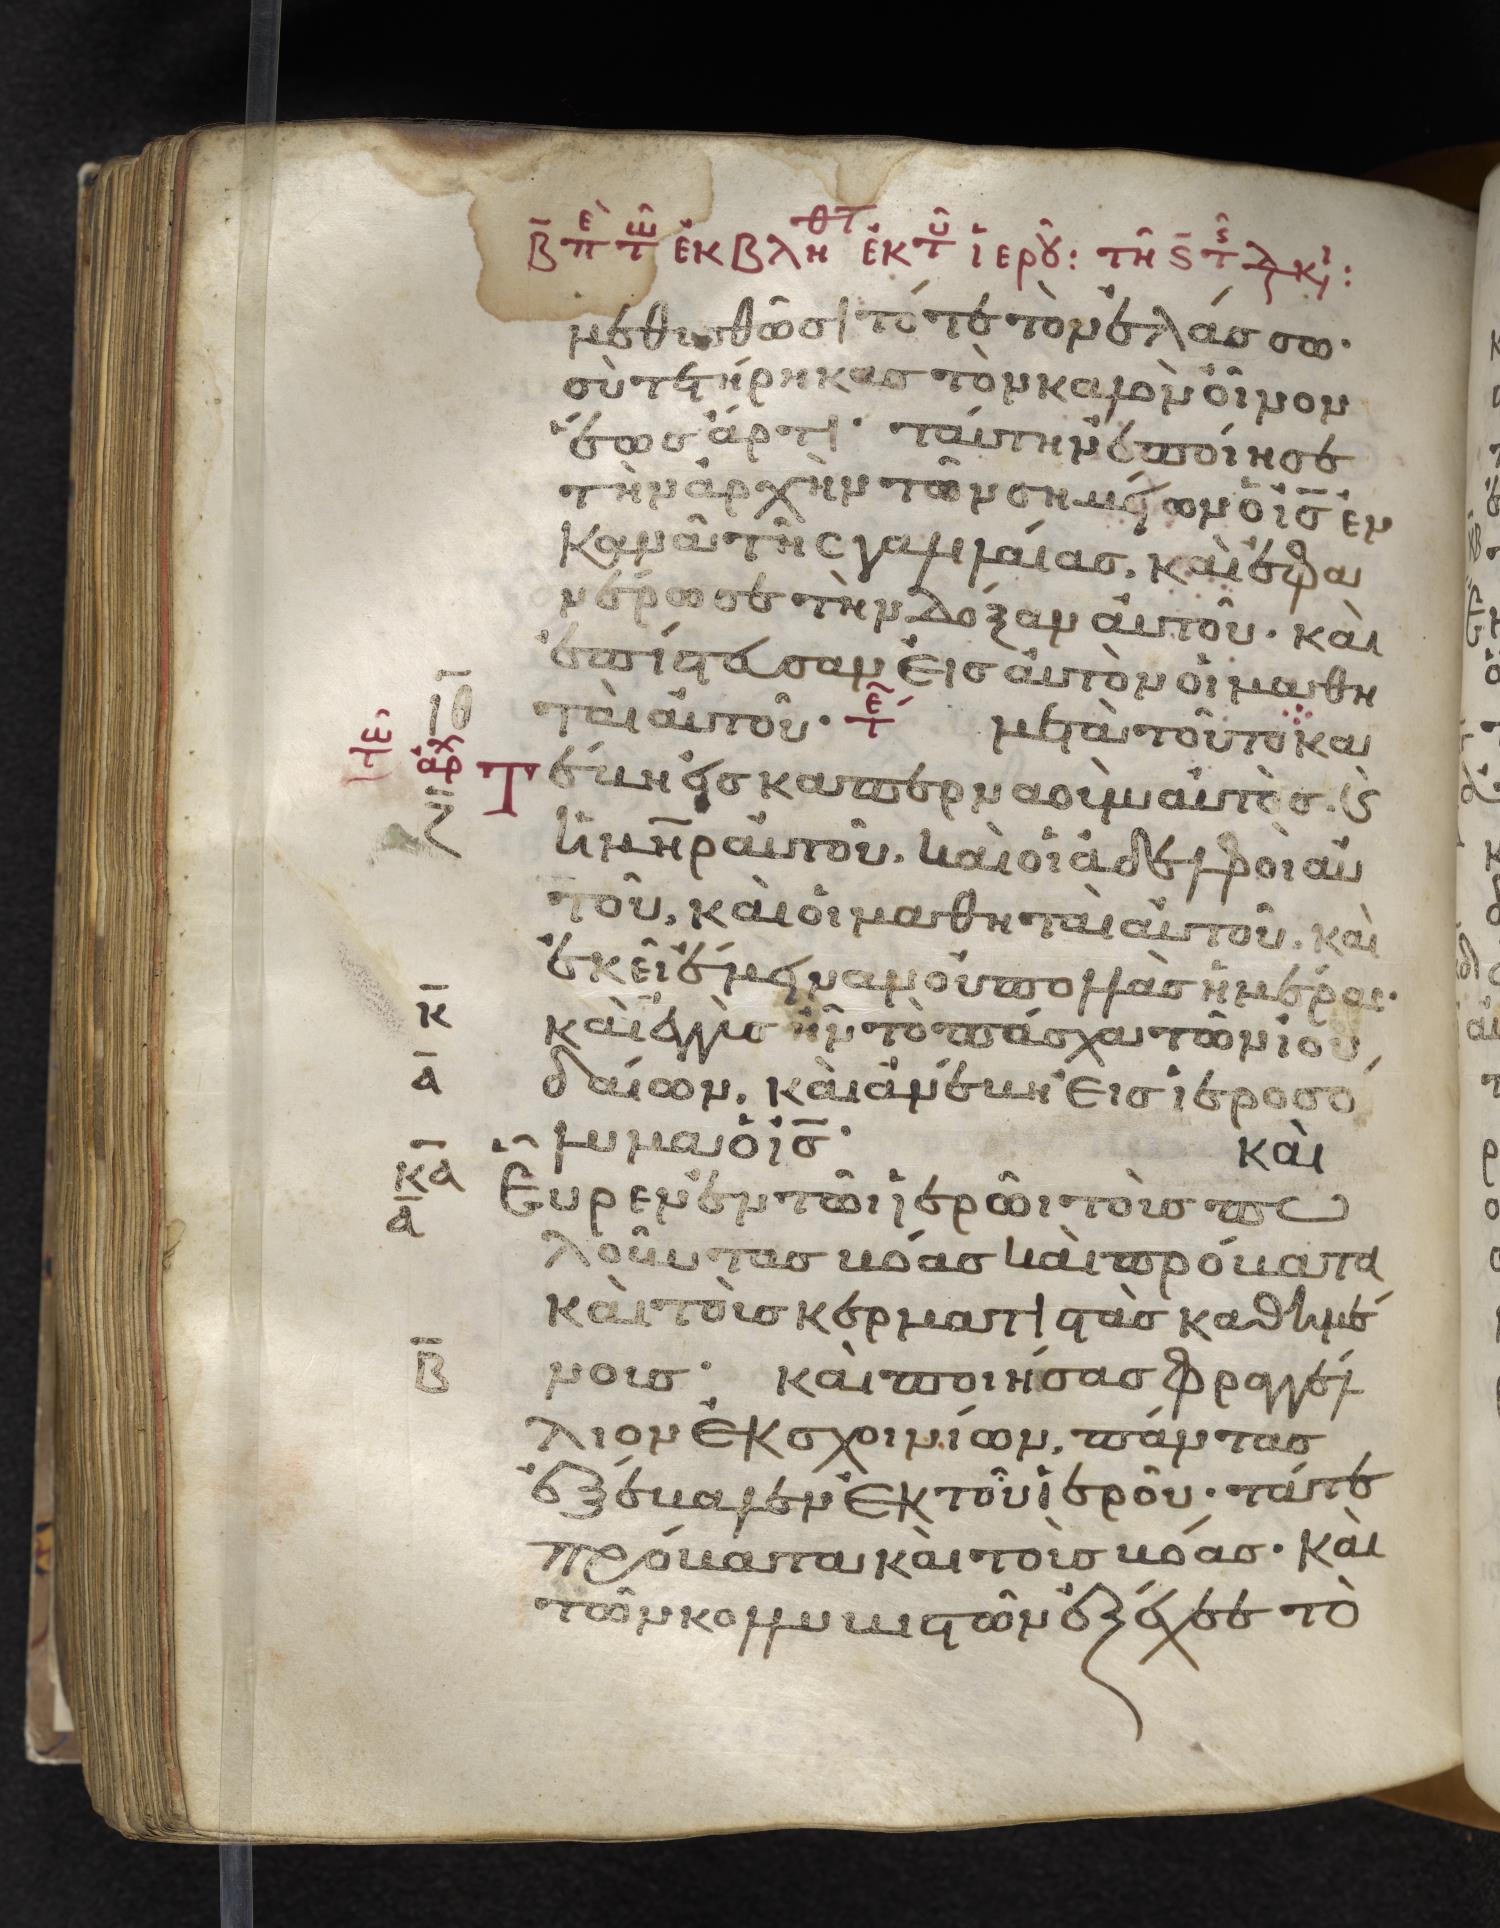 β̅ πε τω ἐκβληθτ ἐκ τ ἱεροῦ: τῆ ς̅ τς λκι:
μεθυσθῶσι τότε τὸν ἐλάσσω·
σὺ τετήρηκας τὸν καλὸν οἶνον
ἕως ἄρτι· ταύτην ἐποίησε
τὴν ἀρχὴν τῶν σημείων ὁ ις̅ ἐν
Κανᾶ τῆς γαλιλαίας. καὶ ἐφα
νέρωσε τὴν δόξαν αὐτοῦ· καὶ
ἐπίστευσαν εἰς αὐτὸν οἱ μαθη
ταὶ αὐτοῦ· τε μετὰ τοῦτο κα
τέβη εἰς καπερναοὺμ αὐτὸς. καὶ
ἡ μη̅ρ αὐτοῦ. καὶ οἱ ἀδελφοὶ αὐ
τοῦ, καὶ οἱ μαθηταὶ αὐτοῦ. καὶ
ἐκεῖ ἔμειναν οὐ πολλὰς ἡμέρας·
καὶ ἐγγὺς ἦν τὸ πάσχα τῶν ἰου
δαίων, καὶ ἀνέβη εἰς ἱεροσό
λυμα ὁ ις̅· καὶ
εὗρεν ἐν τῶι ἱερῶι τοὺς πω
λοῦντας βόας καὶ πρόβατα
καὶ τοὺς κερματιστὰς καθημέ
νους· καὶ ποιήσας φραγγέλ
λιον ἐκ σχοινίων, πάντας
ἐξέβαλεν ἐκ τοῦ ἱεροῦ· τά τε
πρόβατα καὶ τοὺς βόας· καὶ
τῶν κολλυβιστῶν ἐξέχεε τὸ
ι̅θ̅
ἀρχ
ζ̅
κ̅
α̅
κ̅α̅
α̅
β̅